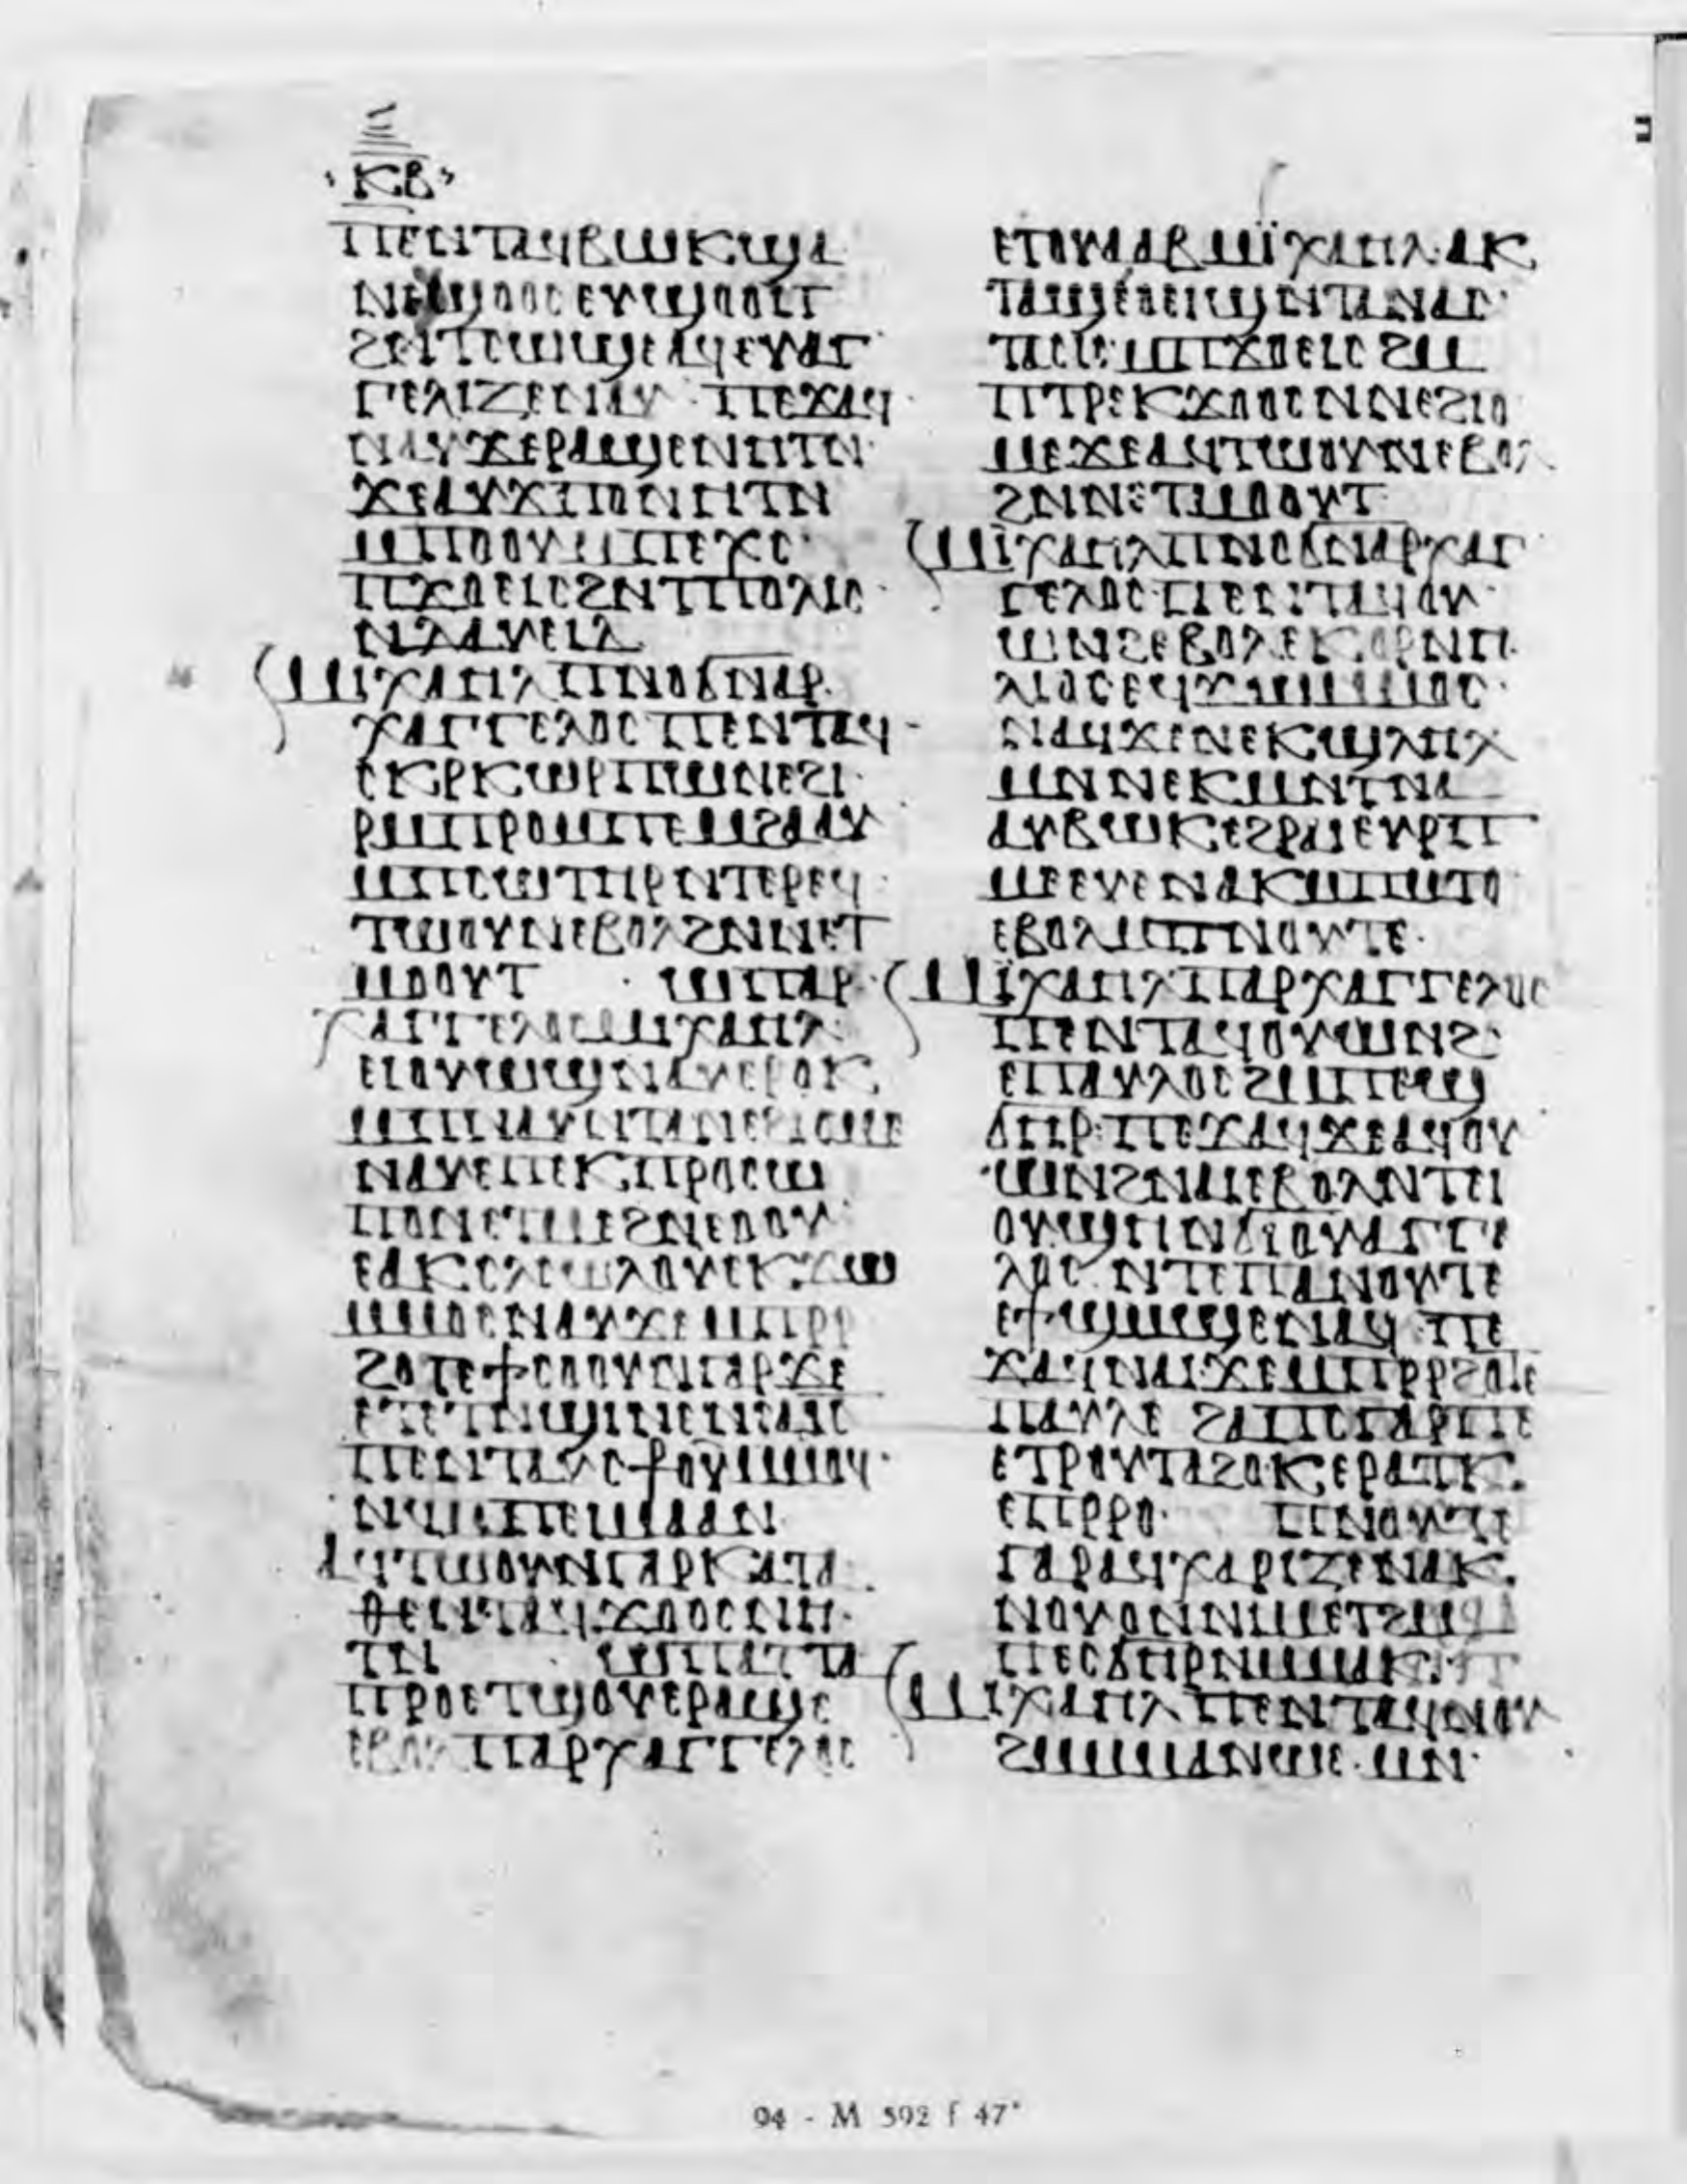 ⲕⲃ
ⲡⲉⲛⲧⲁϥⲃⲱⲕϣⲁ
ⲛⲉϣⲟⲟⲥⲉⲩϣⲟⲟⲡ
ϩⲛⲧⲥⲱϣⲉⲁϥⲉⲩⲁⲅ
ⲅⲉⲗⲓⲍⲉⲛⲁⲩ ⲡⲉϫⲁϥ
ⲛⲁⲩϫⲉⲣⲁϣⲉⲛⲏⲧⲛ
ϫⲉⲁⲩϫⲡⲟⲛⲏⲧⲛ
ⲙⲡⲟⲟⲩⲙⲡⲉⲭⲥ
ⲡϫⲟⲉⲓⲥϩⲛⲧⲡⲟⲗⲓⲥ
ⲛⲇⲁⲩⲉⲓⲇ
ⲙⲓⲭⲁⲏⲗⲡⲛⲟϭⲛⲁⲣ
ⲭⲁⲅⲅⲉⲗⲟⲥⲡⲉⲛⲧⲁϥ
ⲥⲕⲣⲕⲱⲣⲡⲱⲛⲉϩⲓ
ⲣⲙⲡⲣⲟⲙⲡⲉⲙϩⲁⲁⲩ
ⲙⲡⲥⲱⲧⲏⲣⲛⲧⲉⲣⲉϥ
ⲧⲱⲟⲩⲛⲉⲃⲟⲗϩⲛⲛⲉⲧ
ⲙⲟⲟⲩⲧ ⲱⲡⲁⲣ
ⲭⲁⲅⲅⲉⲗⲟⲥⲙⲓⲭⲁⲏⲗ
ⲉⲓⲟⲩⲱϣⲛⲁⲩⲉⲣⲟⲕ
ⲙⲡⲛⲁⲩⲛⲧⲁⲛⲉϩⲓⲟⲙⲉ
ⲛⲁⲩⲉⲡⲉⲕⲡⲣⲟⲥⲱ
ⲡⲟⲛⲉⲧⲙⲉϩⲛⲉⲟⲟⲩ
ⲉⲁⲕⲥⲗⲥⲱⲗⲟⲩⲉⲕϫⲱ
ⲙⲙⲟⲥⲛⲁⲩϫⲉⲙⲡⲣⲣ
ϩⲟⲧⲉϯⲥⲟⲟⲩⲛⲅⲁⲣϫⲉ
ⲉⲧⲉⲧⲛϣⲓⲛⲉⲛⲥⲁⲓⲥ
ⲡⲉⲛⲧⲁⲩⲥϯⲟⲩⲙⲙⲟϥ
ⲛϥⲙⲡⲉⲓⲙⲁⲁⲛ
ⲁϥⲧⲱⲟⲩⲛⲅⲁⲣⲕⲁⲧⲁ
ⲑⲉⲛⲧⲁϥϫⲟⲟⲥⲛⲏ
ⲧⲛ ⲱⲡⲁⲡⲡ
ⲡⲣⲟⲉⲧϣⲟⲩⲉⲣⲁϣⲉ
ⲉⲃⲟⲗⲡⲁⲣⲭⲁⲅⲅⲉⲗⲟⲥ
ⲉⲧⲟⲩⲁⲁⲃⲙⲓ̈ⲭⲁⲏⲗ·ⲁⲕ
ⲧⲁϣⲉⲟⲉⲓϣⲛⲧⲁⲛⲁⲥ
ⲧⲁⲥⲓⲥⲙⲡϫⲟⲉⲓⲥϩⲙ
ⲡⲧⲣⲉⲕϫⲟⲟⲥⲛⲛⲉϩⲓⲟ
ⲙⲉϫⲉⲁϥⲧⲱⲟⲩⲛⲉⲃⲟⲗ
ϩⲛⲛⲉⲧⲙⲟⲟⲩⲧ
ⲙⲓ̈ⲭⲁⲏⲗⲡⲛⲟϭⲛⲁⲣⲭⲁⲅ
ⲅⲉⲗⲟⲥ·ⲡⲉⲛⲧⲁϥⲟⲩ
ⲱⲛϩⲉⲃⲟⲗⲉⲕⲟⲣⲛⲏ
ⲗⲓⲟⲥⲉϥϫⲱⲙⲙⲟⲥ
ⲛⲁϥϫⲉⲛⲉⲕϣⲗⲏⲗ
ⲙⲛⲛⲉⲕⲙⲛⲧⲛⲁ
ⲁⲩⲃⲱⲕⲉϩⲣⲁⲓⲉⲩⲣⲡ
ⲙⲉⲉⲩⲉⲛⲁⲕⲙⲡⲙⲧⲟ
ⲉⲃⲟⲗⲙⲡⲛⲟⲩⲧⲉ
ⲙⲓ̈ⲭⲁⲏⲗⲡⲁⲣⲭⲁⲅⲅⲉⲗⲟⲥ
ⲡⲉⲛⲧⲁϥⲟⲩⲱⲛϩ
ⲉⲡⲁⲩⲗⲟⲥϩⲙⲡⲉϣ
ϭⲏⲣ·ⲡⲉϫⲁϥϫⲉⲁϥⲟⲩ
ⲱⲛϩⲛⲁⲓⲉⲃⲟⲗⲛⲧⲉⲓ
ⲟⲩϣⲏⲛϭⲓⲟⲩⲁⲅⲅⲉ
ⲗⲟⲥ ⲛⲧⲉⲡⲁⲛⲟⲩⲧⲉ
ⲉϯϣⲙϣⲉⲛⲁϥ ⲡⲉ
ϫⲁϥⲛⲁⲓ·ϫⲉⲙⲡⲣⲣϩⲟⲧⲉ
ⲡⲁⲩⲗⲉ ϩⲁⲡⲥⲅⲁⲣⲡⲉ
ⲉⲧⲣⲉⲩⲧⲁϩⲟⲕⲉⲣⲁⲧⲕ
ⲉⲡⲣⲣⲟ· ⲡⲛⲟⲩⲧⲉ
ⲅⲁⲣⲁϥⲭⲁⲣⲓⲍⲉⲛⲁⲕ
ⲛⲟⲩⲟⲛⲛⲓⲙⲉⲧϩⲙ
ⲡⲉⲥϭⲏⲣⲛⲙⲙⲁⲕ·
ⲙⲓⲭⲁⲏⲗⲡⲉⲛⲧⲁϥⲛⲟⲩ
ϩⲙⲙⲙⲁⲛⲱⲉ·ⲙⲛ
94 - M 592 f 47ᵛ